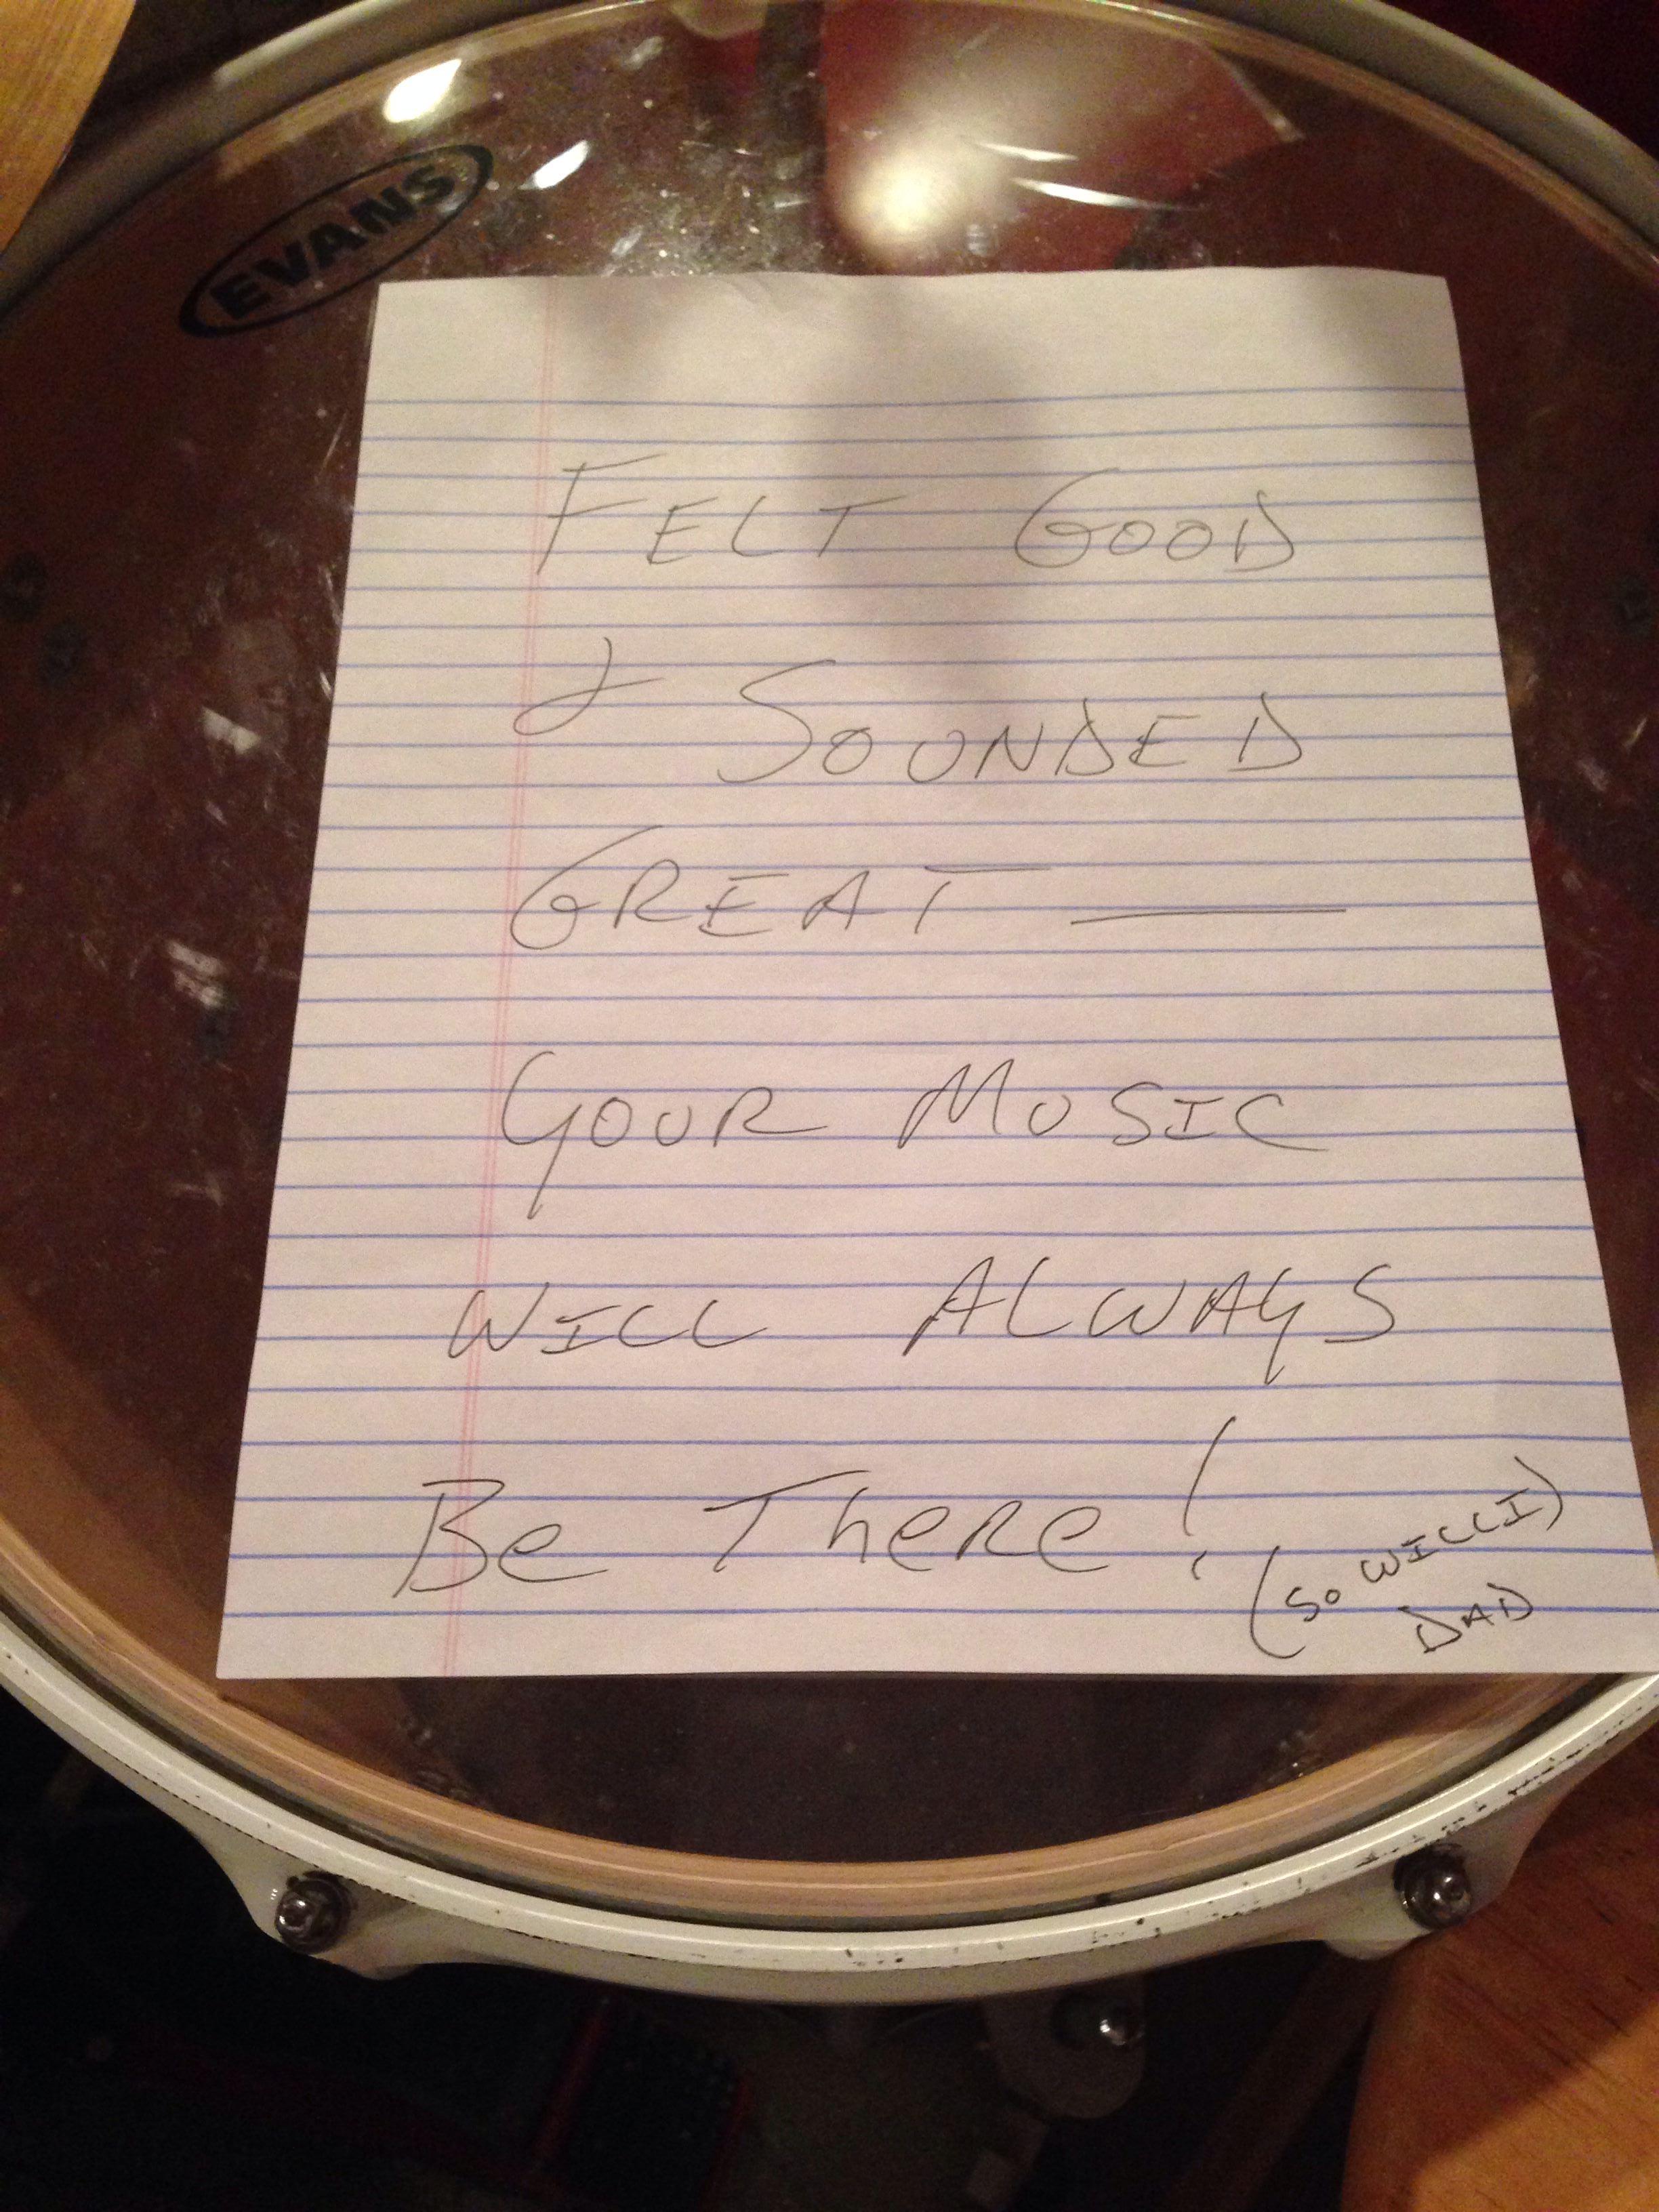 EVANS
FELT GOOD
& SOUNDED
GREAT —
YOUR MUSIC
WILL ALWAYS
Be THeRe!
(SO WILL I)
DAD